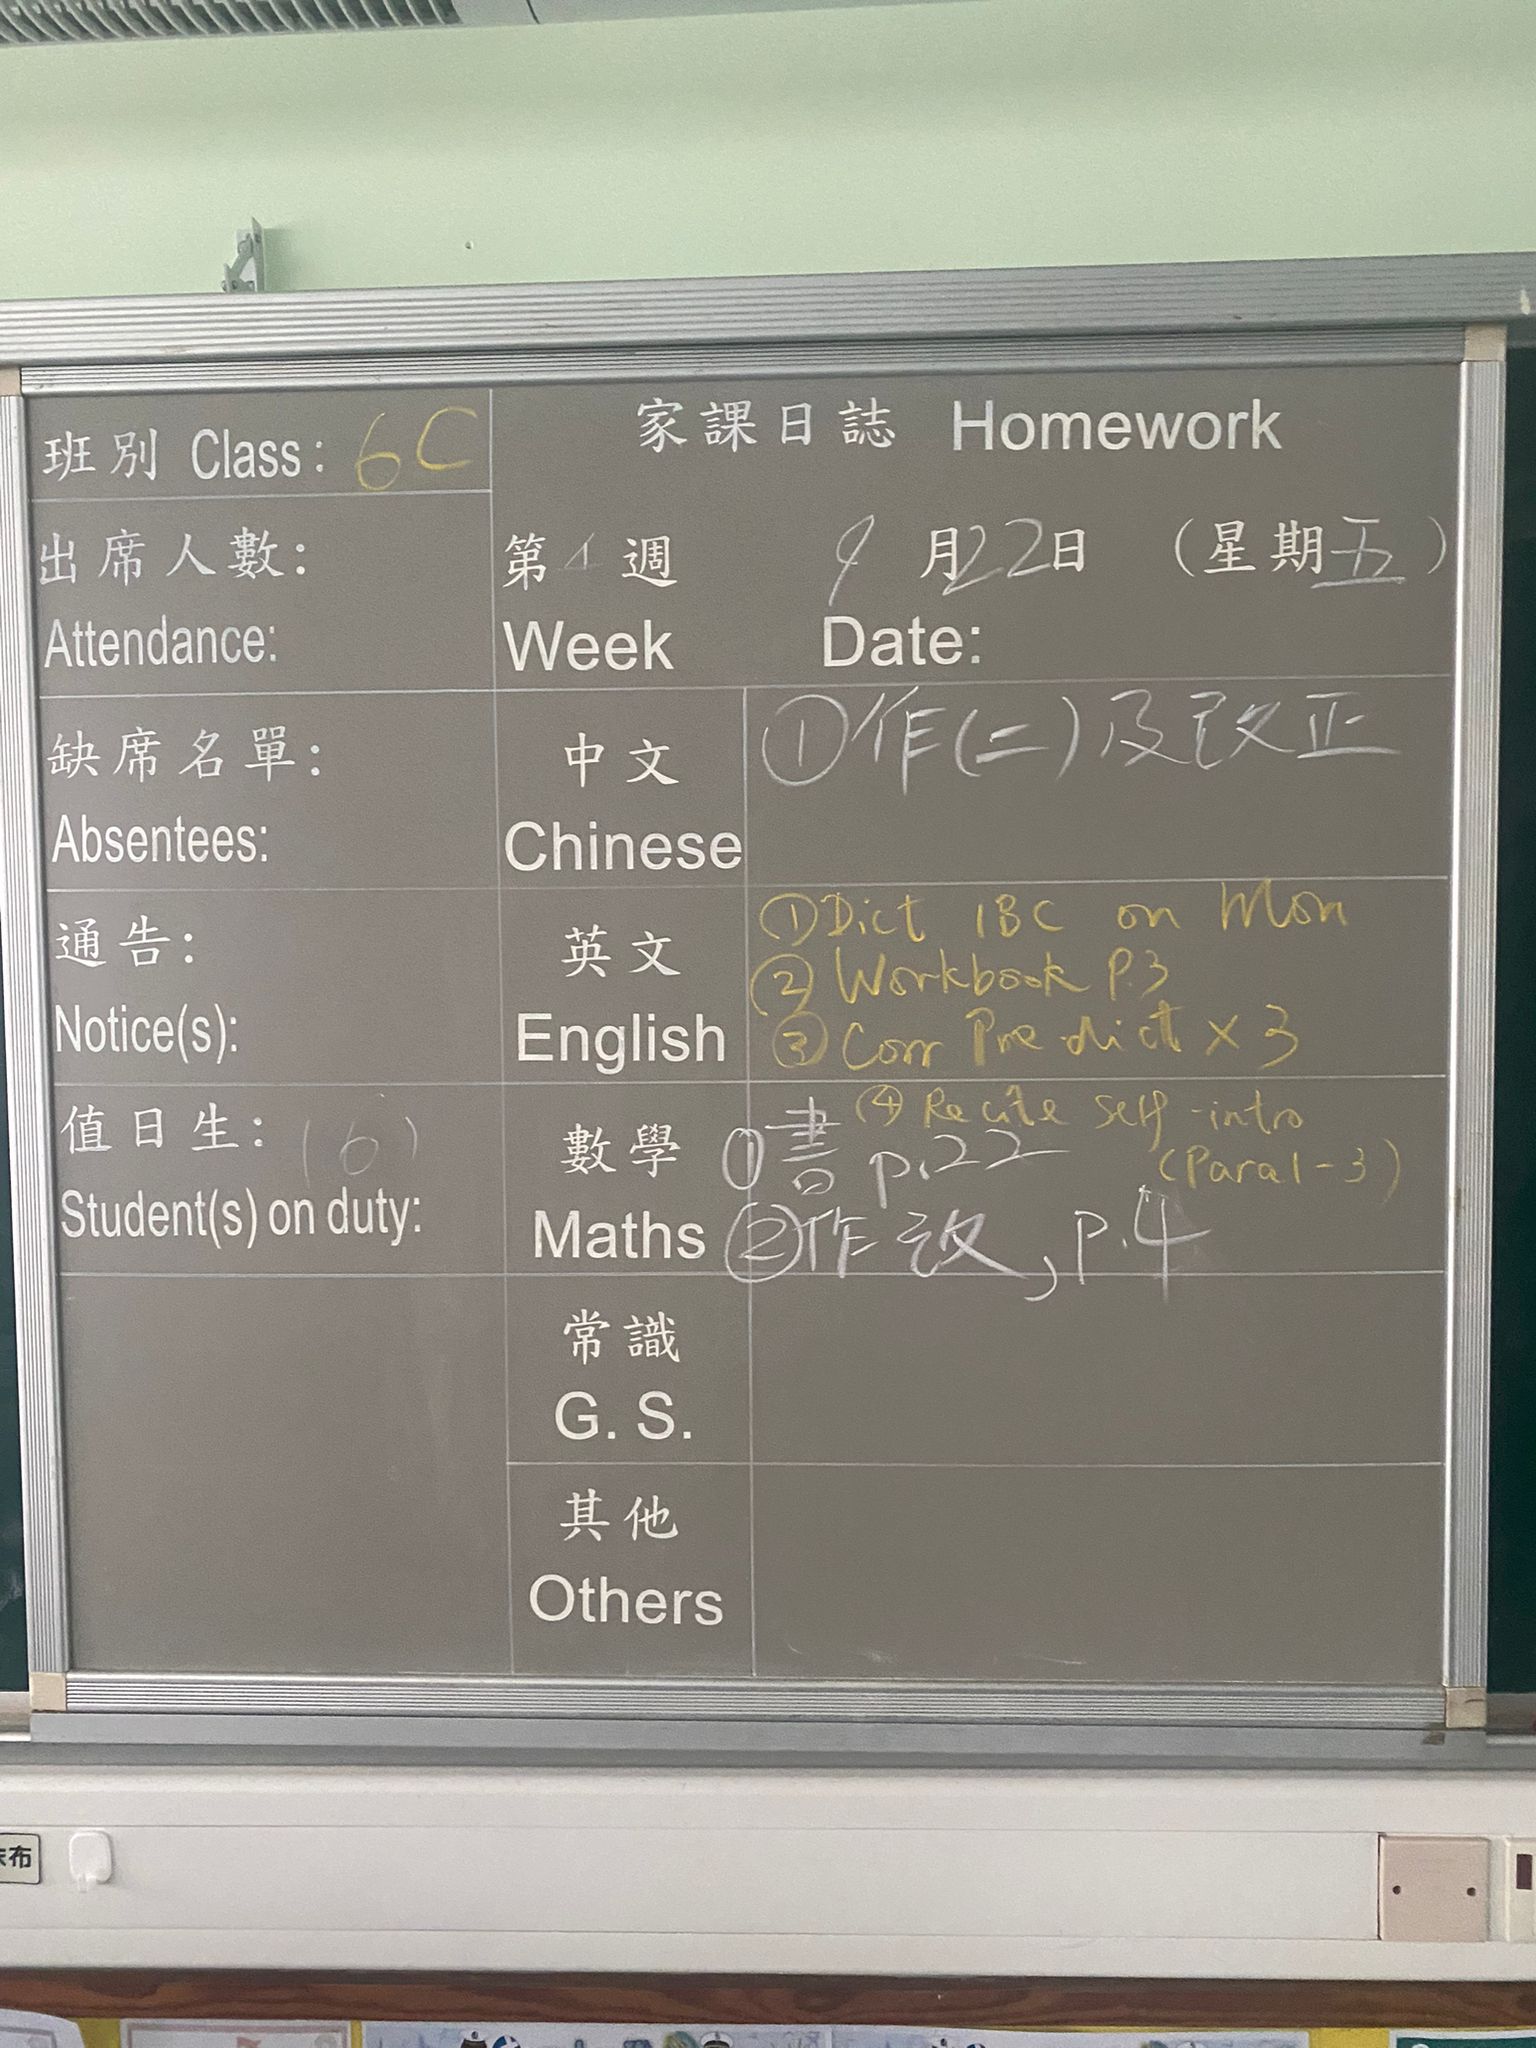 家課日誌 Homework
班別 Class: 6C
出席人數:
Attendance:
第 週
Week
9月22日 (星期五)
Date:
缺席名單:
Absentees:
中文
Chinese
①作(二)及改正
通告:
Notice(s):
英文
English
①Dict 1BC on Mon
②Workbook P.3
③Corr Pre-dict x3
④Recite self-intro
(Para1-3)
值日生: (6)
Student(s) on duty:
數學
Maths
①書 p.22
②作改, p.4
常識
G. S.
其他
Others
布